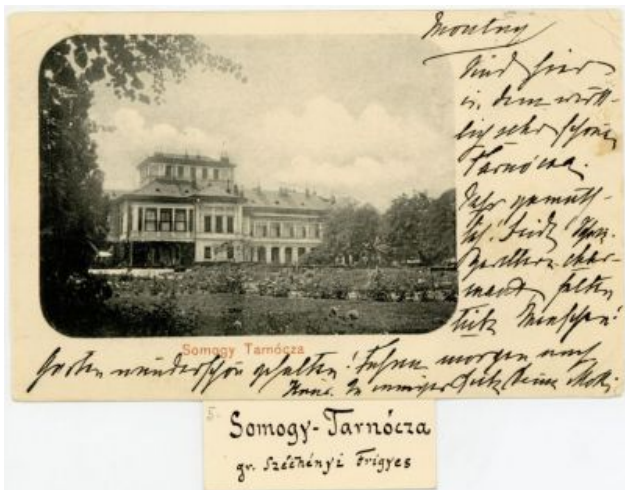 Montag
Sind hier
in dem wirk-
lich sehr schönen
Tarnócza.
Sehr gemüth-
lich! Beide
char-
mant selten
liebe Menschen!
Somogy Tarnócza
Garten wunderschön gehalten! Fahren morgen nach
Hause. In inniger Liebe Deine
5.
Somogy-Tarnócza
gr. Széchényi Frigyes